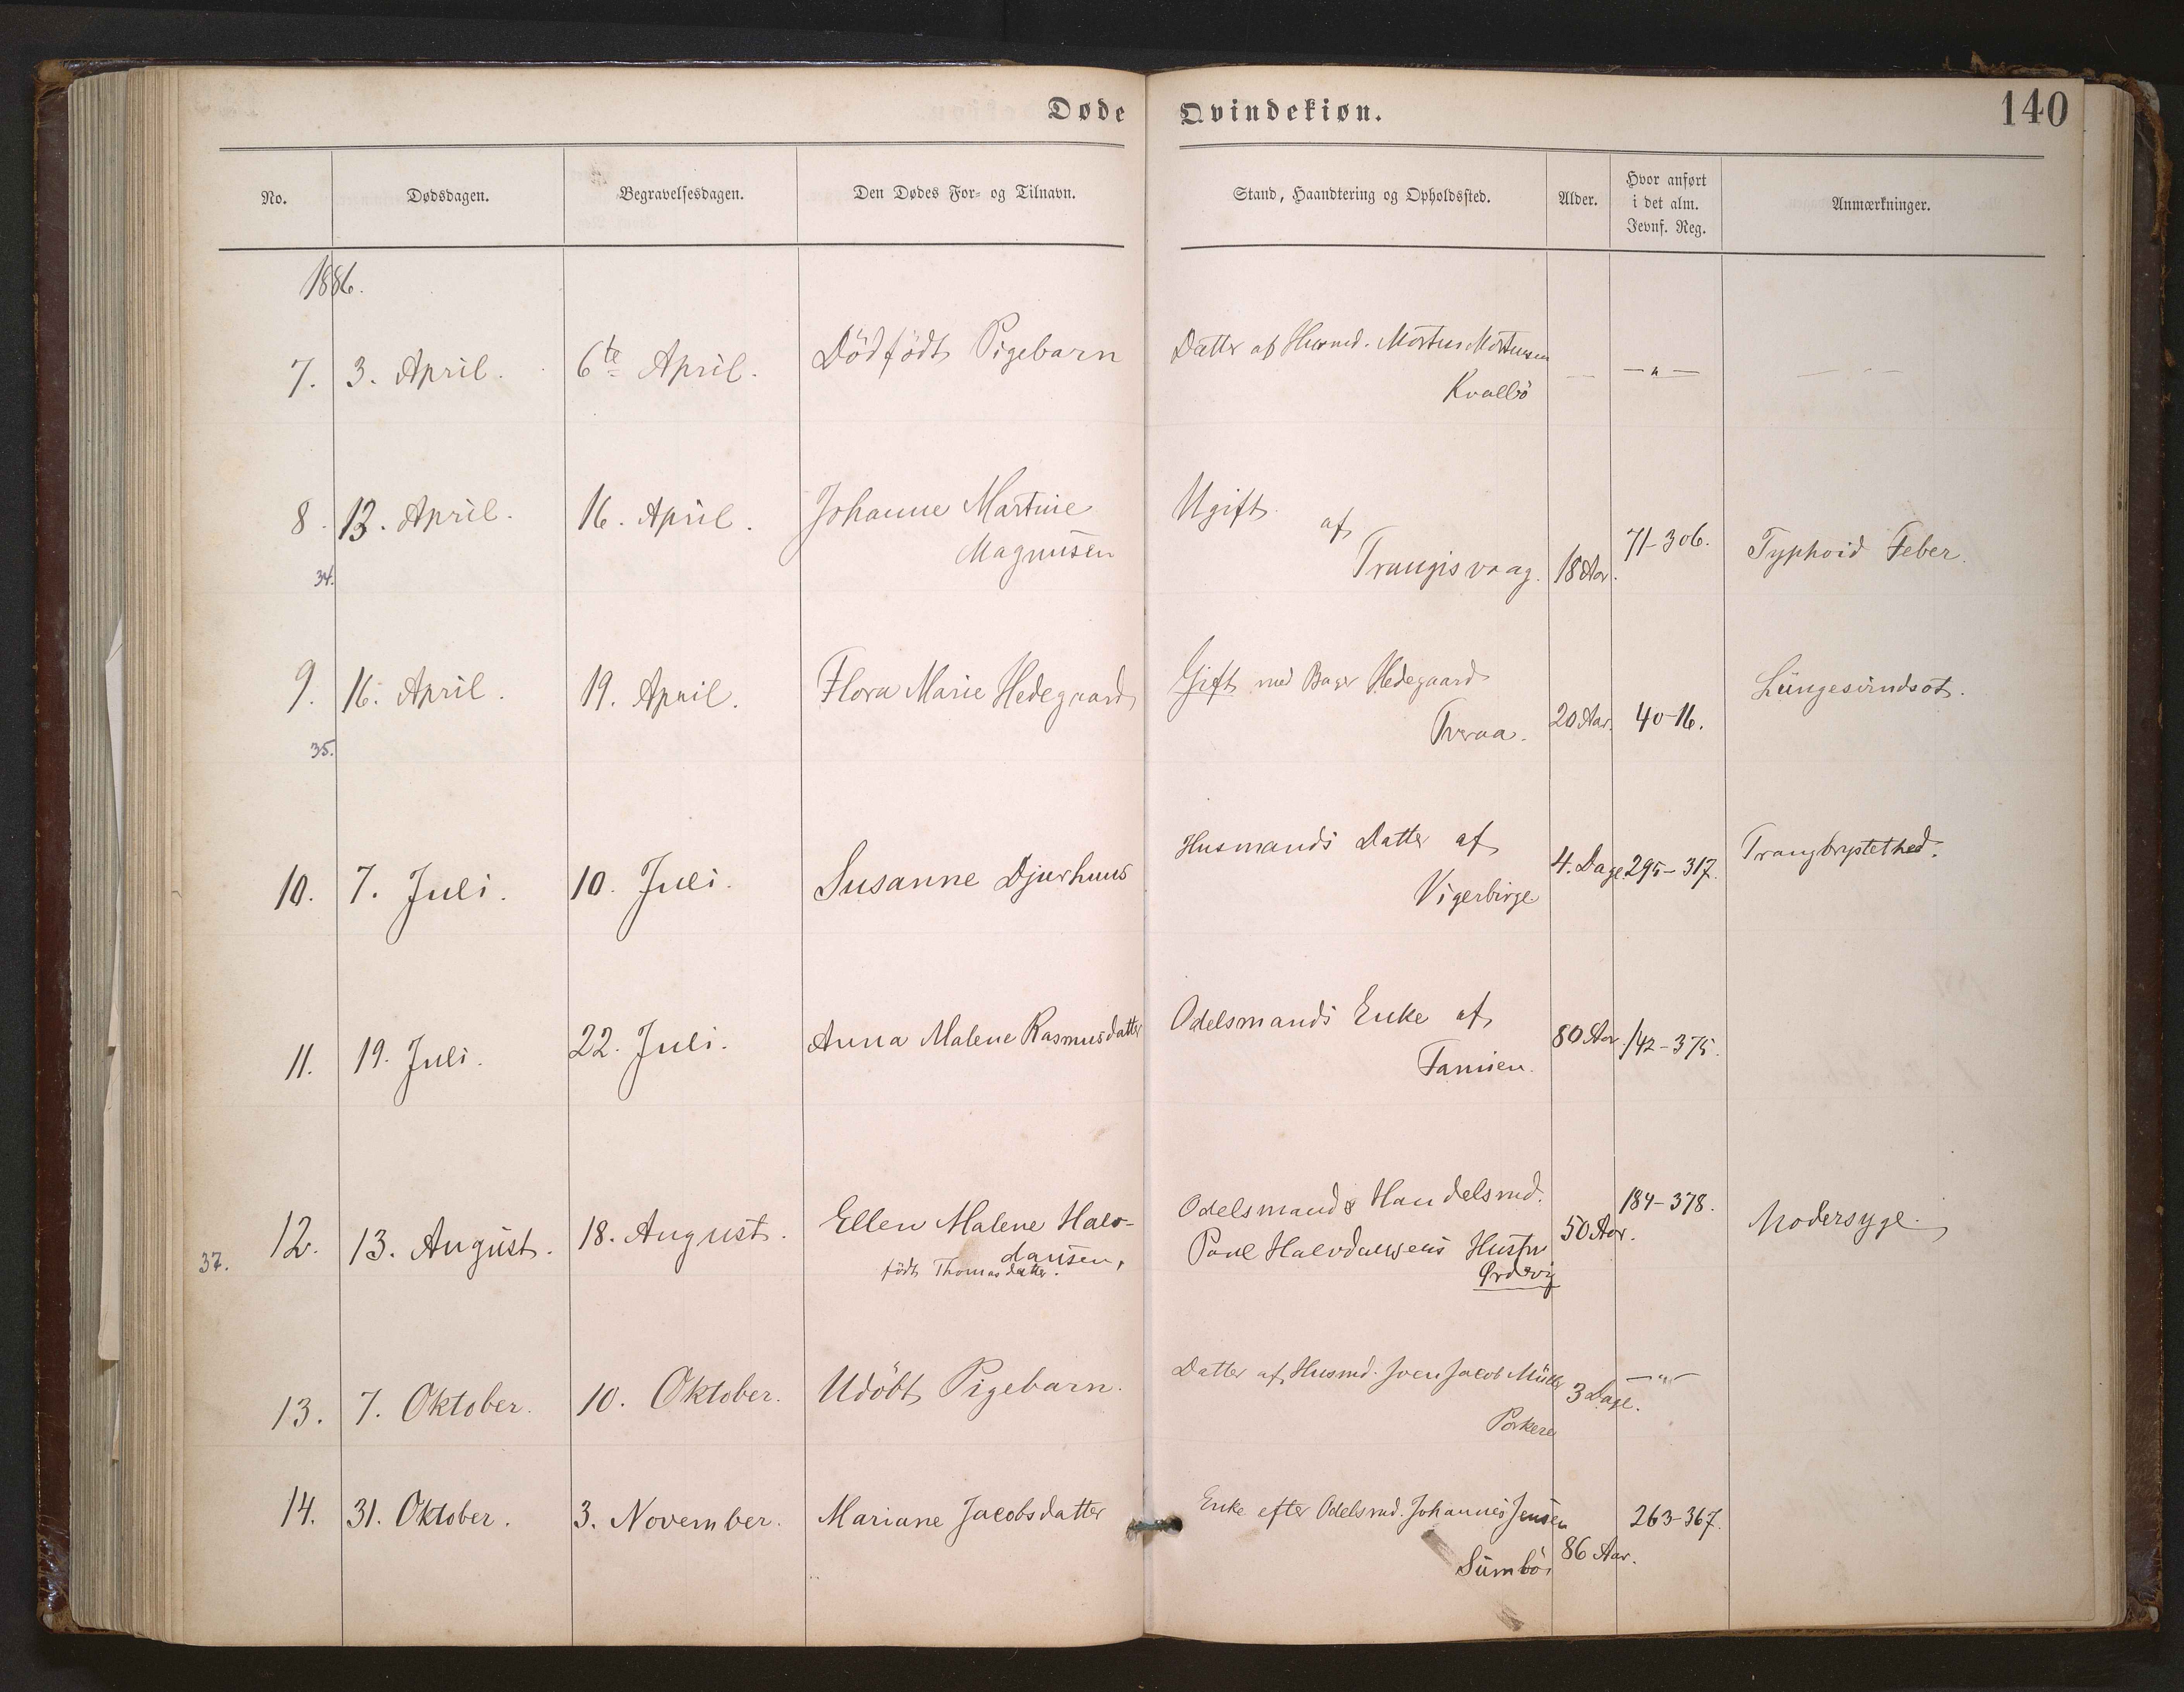 Døde Qvindekiøn. 140
No. Dødsdagen. Begravelsesdagen. Den Dødes For- og Tilnavn. Stand, Haandtering og Opholdssted. Alder. Hvor anført i det alm. Jevnf. Reg. Anmærkninger.
1886.
7. 3. April. 6te April. Dödfödt Pigebarn Datter af Husmd. Morten Mortensen — —"— — " —
Kvalbö
8. 13. April. 16. April. Johanne Martine Ugift af 71-306. Typhoid Feber.
Magnusen Trangisvaag. 18 Aar.
34.
9. 16. April. 19. April. Flora Marie Hedegaard Gift med Bager Hedegaard Lungesvindsot.
Tveraa. 20 Aar. 40-16.
35.
10. 7. Juli. 10. Juli. Susanne Djurhuus Husmands Datter af 4. Dage 295-317. Trangbrystethed.
Vigerbirge
11. 19. Juli. 22. Juli. Anna Malene Rasmusdatter Odelsmands Enke af 80 Aar. 142-375.
Famien.
12. 13. August. 18. August. Ellen Malene Halv- Odelsmand & Handelsmd. 50 Aar. 184-378. Modersyge.
dansen, Poul Halvdansens Hustru
37. födt Thomasdatter. Ørdevig
13. 7. Oktober. 10. Oktober. Udöbt Pigebarn. Datter af Husmd. Sven Jacob Müller 3 Dage. —"—
Porkere
14. 31. Oktober. 3. November. Mariane Jacobsdatter Enke efter Odelsmd. Johannes Jensen 263-367.
Sumbö. 86 Aar.